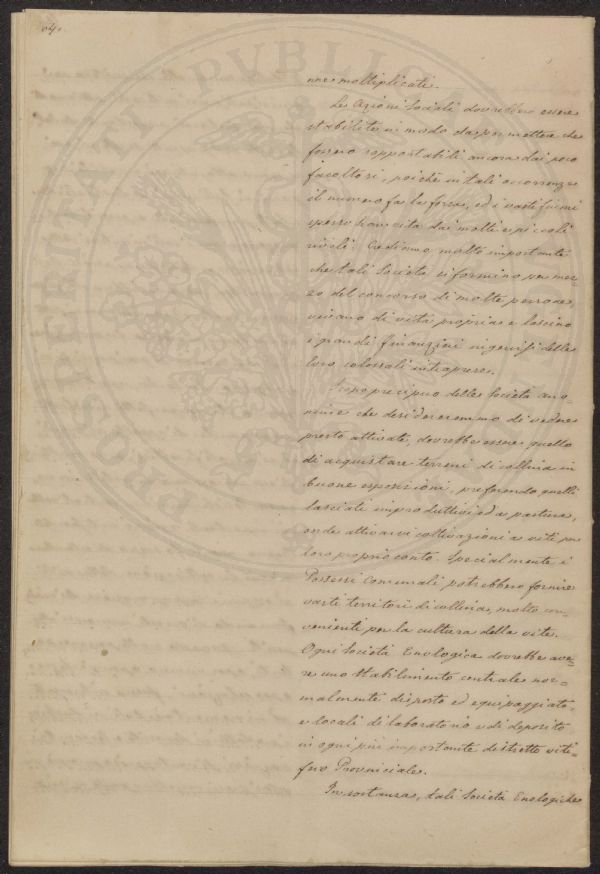 04.
PROSPERITATI PVBLICAE
nse moltiplicati.
Le Azioni Sociali dovrebbero essere
stabilite in modo da permettere che
fossero sopportabili ancora dai poco
facoltosi, poichè in tali occorrenze
il numero fa la forza, ed i vasti fiumi
spesso han vita dai molti e piccoli
rivoli. Crediamo molto importante
che tali Società si formino per mez=
zo del concorso di molte persone,
vivano di vita propria e lascino
i grandi finanzieri nelle
loro colossali intraprese.
Scopo precipuo delle Società ano=
nime che desidereremmo di vedere
presto attivate, dovrebbe essere quello
di acquistare terreni di collina in
buone esposizioni, preferendo quelli
lasciati improduttivi ed a pastura,
onde attivarvi coltivazioni a viti per
loro proprio conto. Specialmente i
Possessi Comunali potrebbero fornire
vasti territori di collina, molto con=
venienti per la cultura della vite.
Ogni Società Enologica dovrebbe ave=
re uno stabilimento centrale nor=
malmente disposto ed equipaggiato
e locali di laboratorio e di deposito
in ogni più importante distretto viti=
fero Provinciale.
In sostanza, tali Società Enologiche